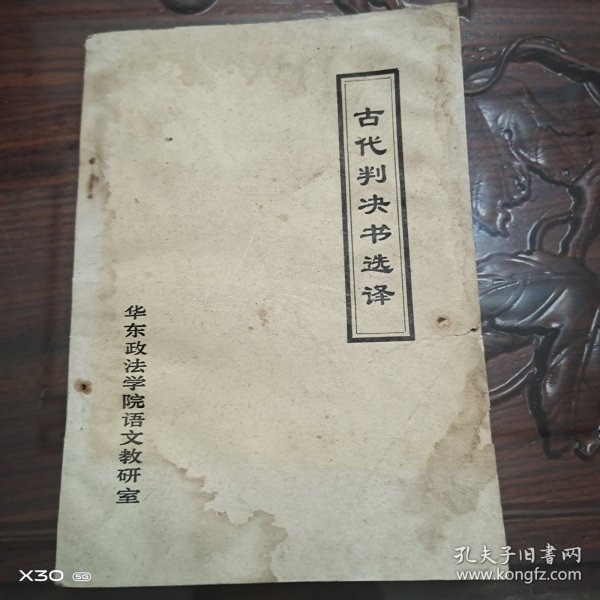 古代判决书选译
华东政法学院语文教研室
X30 5G
孔夫子旧書网
www.kongfz.com